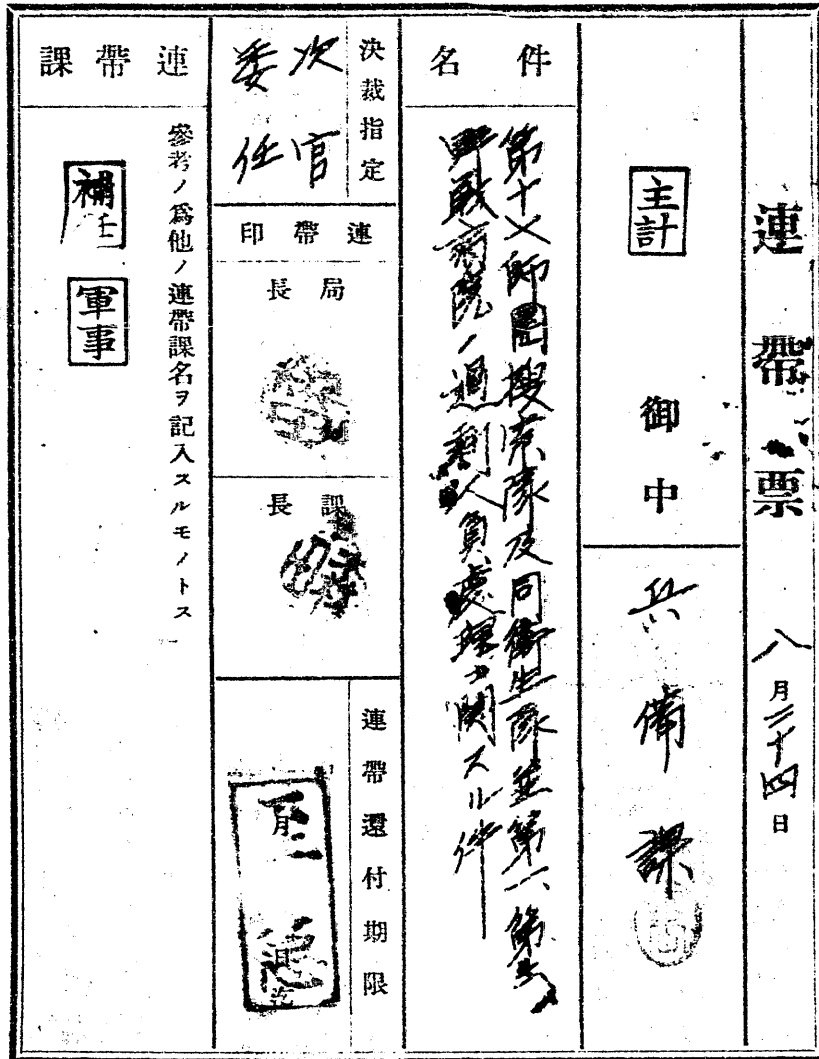 連帶票
八月二十四日
主計 御中
兵備課
件名
第十七師團搜索隊及同衞生隊並第一第二
野戰病院ノ過剩人員處理ニ關スル件
決裁指定
次官
委任
連帶印
局長
課長
連帶還付期限
至急
月
日迄
連帶課
參考ノ爲他ノ連帶課名ヲ記入スルモノトス
補任
軍事